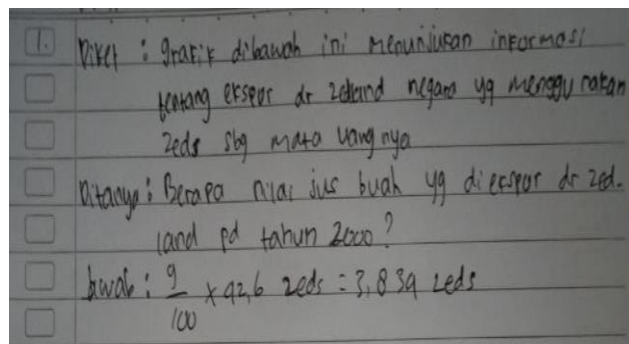 1. Diket : grafik dibawah ini menunjukan informasi
tentang ekspor dr zedland negara yg menggunakan
zeds sbg mata uangnya
Ditanya : Berapa nilai jus buah yg diekspor dr zed.
land pd tahun 2000 ?
Jawab : 9/100 x 42,6 zeds = 3,834 zeds